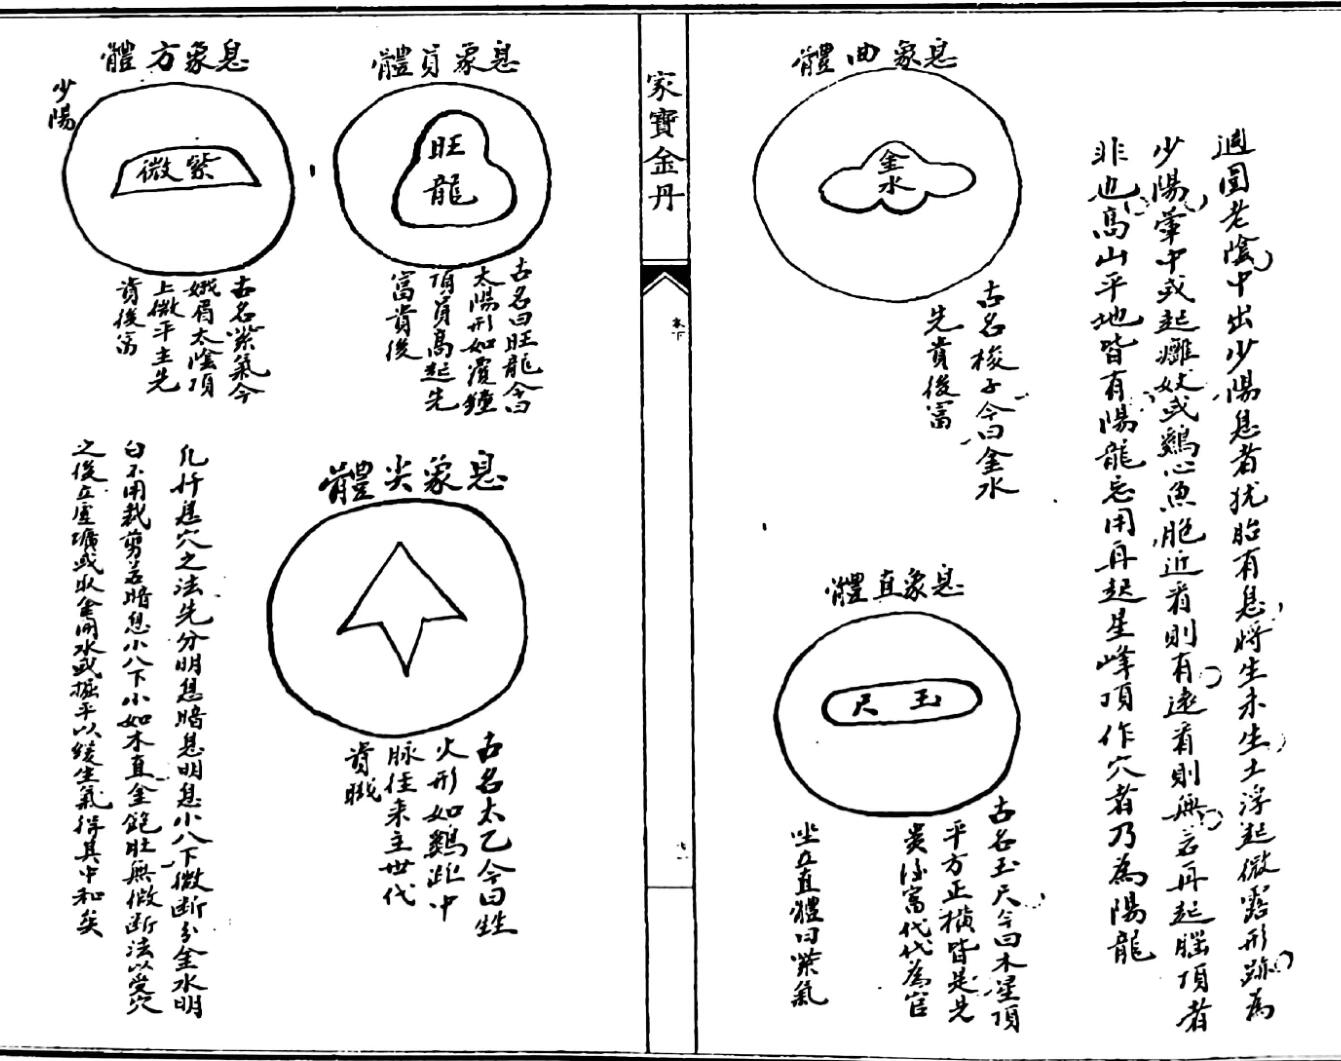 過圍老陰中出少陽息者犹胎有息將生未生土浮起微露形跡為
少陽暈中或起癰妏或鷄心魚胞近看則有遠看則無若再起腦頂者
非也高山平地皆有陽龍忘用再起星峰頂作穴者乃為陽龍
息象曲體
金水
古名梭子今曰金水
先貴後富
息象直體
玉尺
古名玉尺今曰木星頂
平方正橫皆是先
貴後富代代為官
坐立直體曰紫氣
家寶金丹
息象員體
旺龍
古名曰旺龍今曰
太陽形如覆鐘
頂員高起先
富貴後
息象方體
少陽
紫微
古名紫氣今
娥眉太陰頂
上微平主先
貴後富
息象尖體
古名太乙今曰
火形如鷄距中
脉徃来主世代
貴職
凡扦息穴之法先分明息暗息明息小八下微断分金水明
白不用裁剪若暗息小八下小如木直金飽肚無微断法以受穴
之後立虛壙或取金開水或掘平以緩生氣得其中和矣